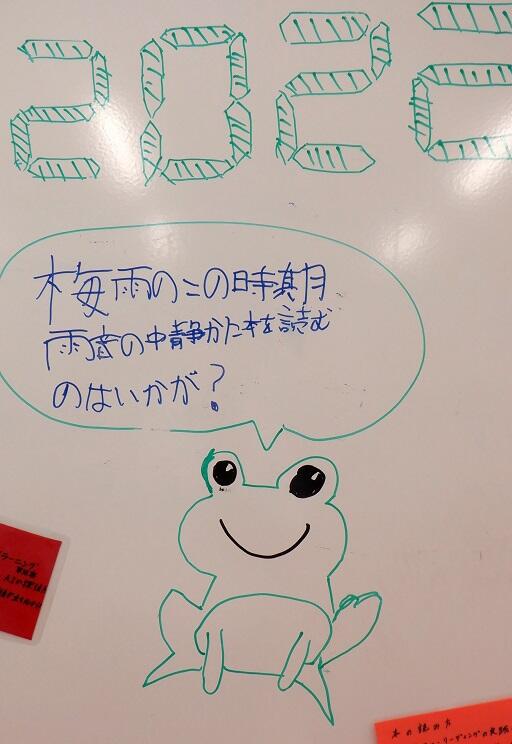 2022
梅雨のこの時期
雨音の中静かに本を読む
のはいかが?
ラーニング
本の読み方
リーディングの実践